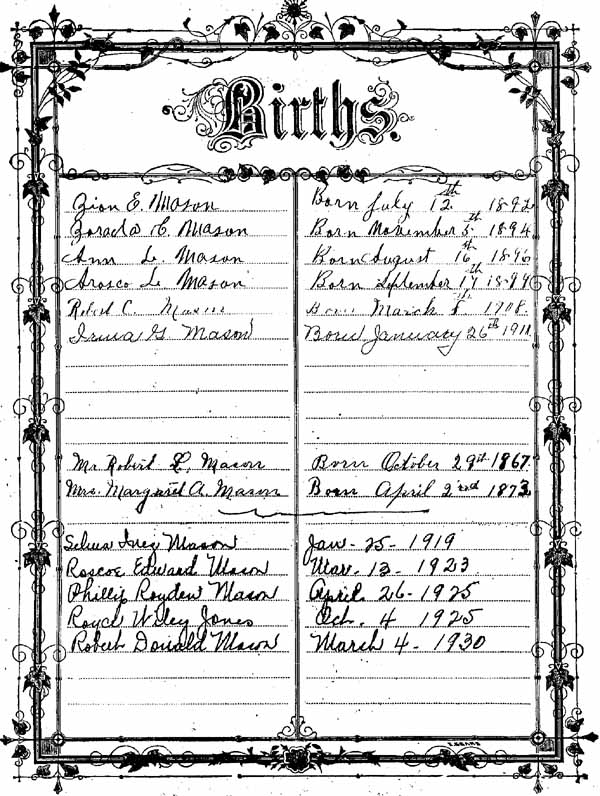 Births.
Zion E. Mason Born July 12th 1892
Zorada C. Mason Born November 5th 1894
Ann L. Mason Born August 16th 1896
Arosco L. Mason Born September 17th 1899
Robert C. Mason Born March 1908.
Irma G. Mason Born January 26th 1911
Mr Robert L. Mason Born October 29th 1867.
Mrs. Margaret A. Mason Born April 2nd 1873
Inez Mason Jan - 25 - 1919
Roscoe Edward Mason Mar. 13 - 1923
Phillip Royden Mason April 26 - 1925
Royce Wiley Jones Oct. 4 1925
Robert Donald Mason March 4 - 1930